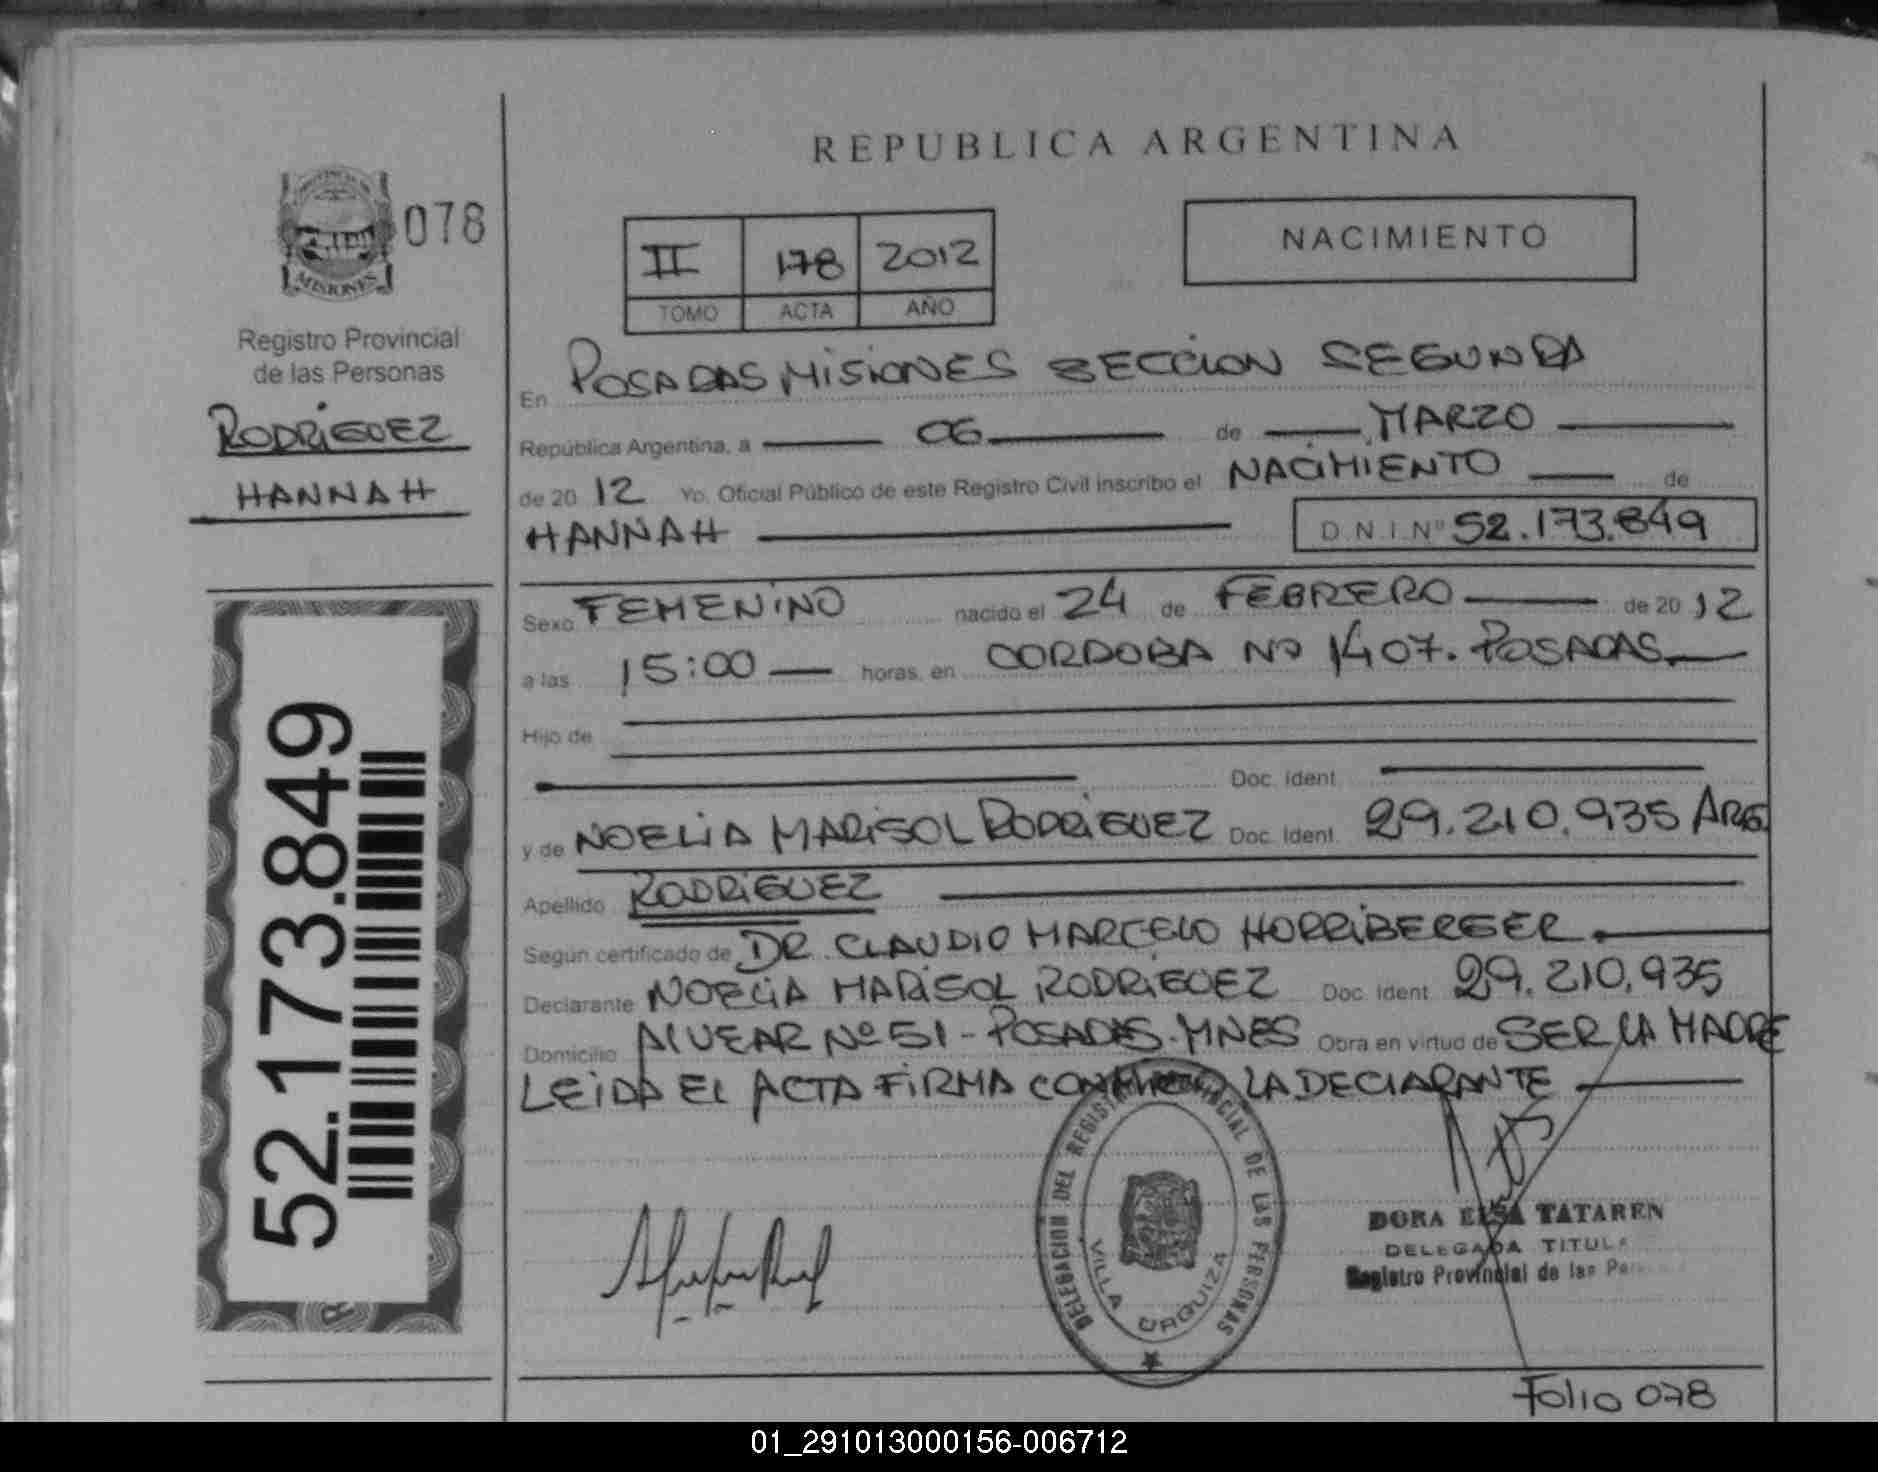 REPUBLICA ARGENTINA
078
MISIONES
Registro Provincial
de las Personas
RODRIGUEZ
HANNAH
52.173.849
II 178 2012
TOMO ACTA AÑO
NACIMIENTO
En POSADAS MISIONES SECCION SEGUNDA
República Argentina, a 06 de MARZO
de 20 12 Yo. Oficial Público de este Registro Civil inscribo el NACIMIENTO de
HANNAH D.N.I.Nº 52.173.849
Sexo FEMENINO nacido el 24 de FEBRERO de 20 12
a las 15:00 horas, en CORDOBA Nº 1407. POSADAS
Hijo de
Doc. Ident.
y de NOELIA MARISOL RODRIGUEZ Doc. Ident. 29.210.935 ARG
Apellido RODRIGUEZ
Según certificado de DR. CLAUDIO MARCELO HORRIBERGER
Declarante NOELIA MARISOL RODRIGUEZ Doc. Ident. 29.210.935
Domicilio ALVEAR Nº 51 - POSADAS. MNES Obra en virtud de SER LA MADRE
LEIDA EL ACTA FIRMA CONMIGO LA DECLARANTE
DELEGACION DEL REGISTRO PROVINCIAL DE LAS PERSONAS
VILLA URQUIZA
DORA ELSA TATAREN
DELEGADA TITULAR
Registro Provincial de las
Folio 078
01_291013000156-006712